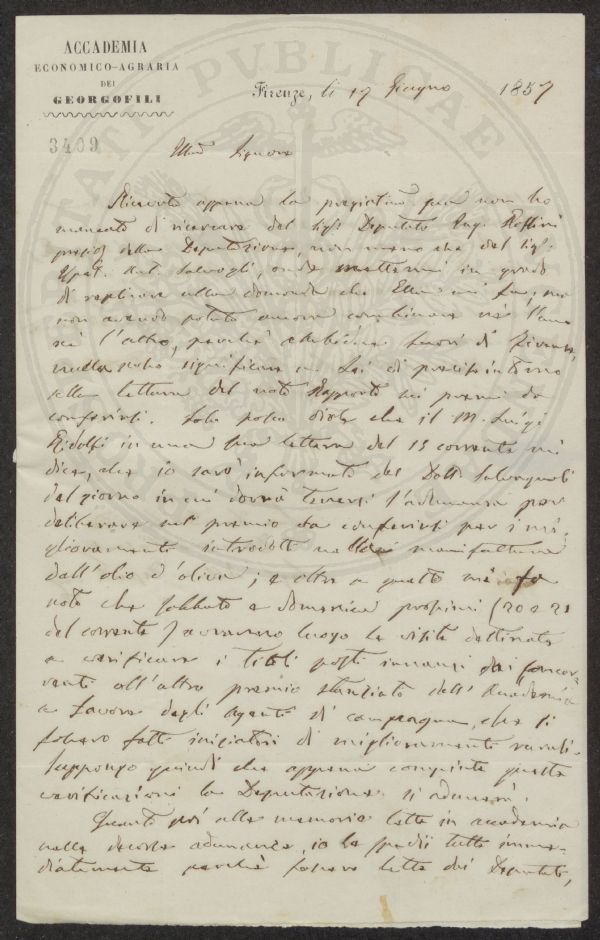 ACCADEMIA
ECONOMICO-AGRARIA
DEI
GEORGOFILI
Firenze, li 17 Giugno 1857
3409
Signore
Ricevuta appena la pregiatissima sua non ho
mancato di ricercare del Sigr Deputato Ingr
della Deputazione, non meno che del Sigr
onde mettermi in grado
di replicare alla domanda che Ella mi fa; ma
non avendo potuto ancora combinare nè l'uno
nè l'altro, perchè ambidue fuori di Firenze,
nulla posso significare a Lei di preciso intorno
alla lettura del noto Rapporto sui premi da
conferirsi. Solo posso dirle che il M. Luigi
Ridolfi in una sua lettera del 15 corrente mi
dice, che io sarò informato dal Dott. Salvagnoli
del giorno in cui dovrà tenersi l'adunanza per
deliberare sul premio da conferirsi per i mi-
glioramenti introdotti nella manifattura
dell'olio d'oliva; e oltre a questo mi fa
noto che sabbato e domenica prossimi (20 e 21
del corrente) avranno luogo le visite destinate
a verificare i titoli posti innanzi dai concor-
renti all'altro premio stanziato dall'Accademia
a favore degli Agenti di campagna, che si
fossero fatti iniziatori di miglioramenti rurali.
Suppongo quindi che appena compiute queste
verificazioni la Deputazione si adunerà.
Quanto poi alle memorie lette in accademia
nella decorsa adunanza, io le spedii tutte imme-
diatamente perchè fossero lette dai Deputati,